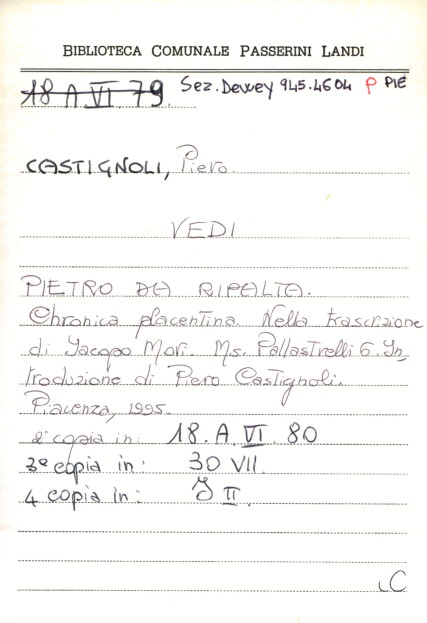 BIBLIOTECA COMUNALE PASSERINI LANDI
18 A VI 79 Sez. Dewey 945.4604 P PIE
CASTIGNOLI, Piero.
VEDI
PIETRO DA RIPALTA.
Chronica placentina. Nella trascrizione
di Jacopo Mori. Ms. Pallastrelli 6. In
troduzione di Piero Castignoli.
Piacenza, 1995.
2ª copia in: 18. A VI 80
3ª copia in: 30 VII
4 copia in: J II